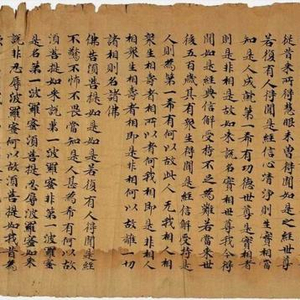 從昔來所得慧眼未曾得聞如是之經世尊
若復有人得聞是經信心清淨則生實相當
知是人成就第一希有功德世尊是實相者
則是非相是故如來說名實相世尊我今得
聞如是經典信解受持不足為難若當來世
後五百歲其有衆生得聞是經信解受持是
人則為第一希有何以故此人无我相人相
衆生相壽者相所以者何我相即是非相人
相衆生相壽者相即是非相何以故離一切
諸相則名諸佛
佛告須菩提如是如是若復有人得聞是經
不驚不怖不畏當知是人甚為希有何以故
須菩提如來說第一波羅蜜非第一波羅蜜
是名第一波羅蜜須菩提忍辱波羅蜜如來
說非忍辱波羅蜜何以故須菩提如我昔為